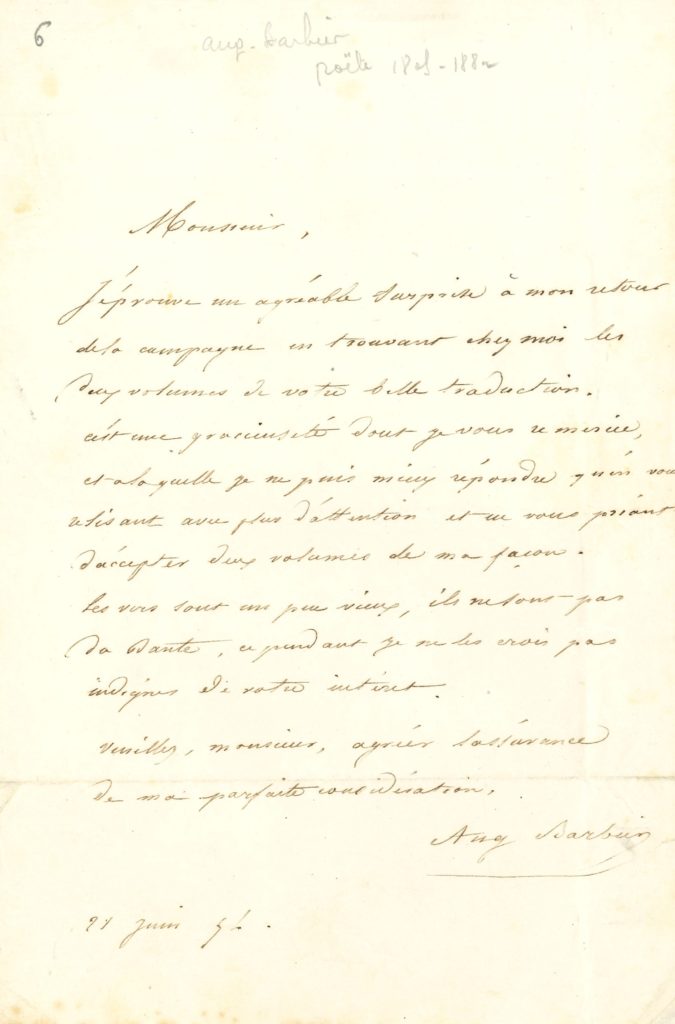 6
Aug. Barbier
poëte 1805-1882
Monsieur,
J'éprouve un agréable surprise à mon retour
de la campagne en trouvant chez moi les
deux volumes de votre belle traduction.
c'est une gracieuseté dont je vous remercie,
et a laquelle je ne puis mieux répondre qu'en vous
relisant avec plus d'attention et en vous priant
d'accepter deux volumes de ma façon.
les vers sont un peu vieux, ils ne sont pas
du Dante, cependant je ne les crois pas
indignes de votre intéret.
Veuillez, monsieur, agréer l'assurance
de ma parfaite considération.
Aug Barbier
juin